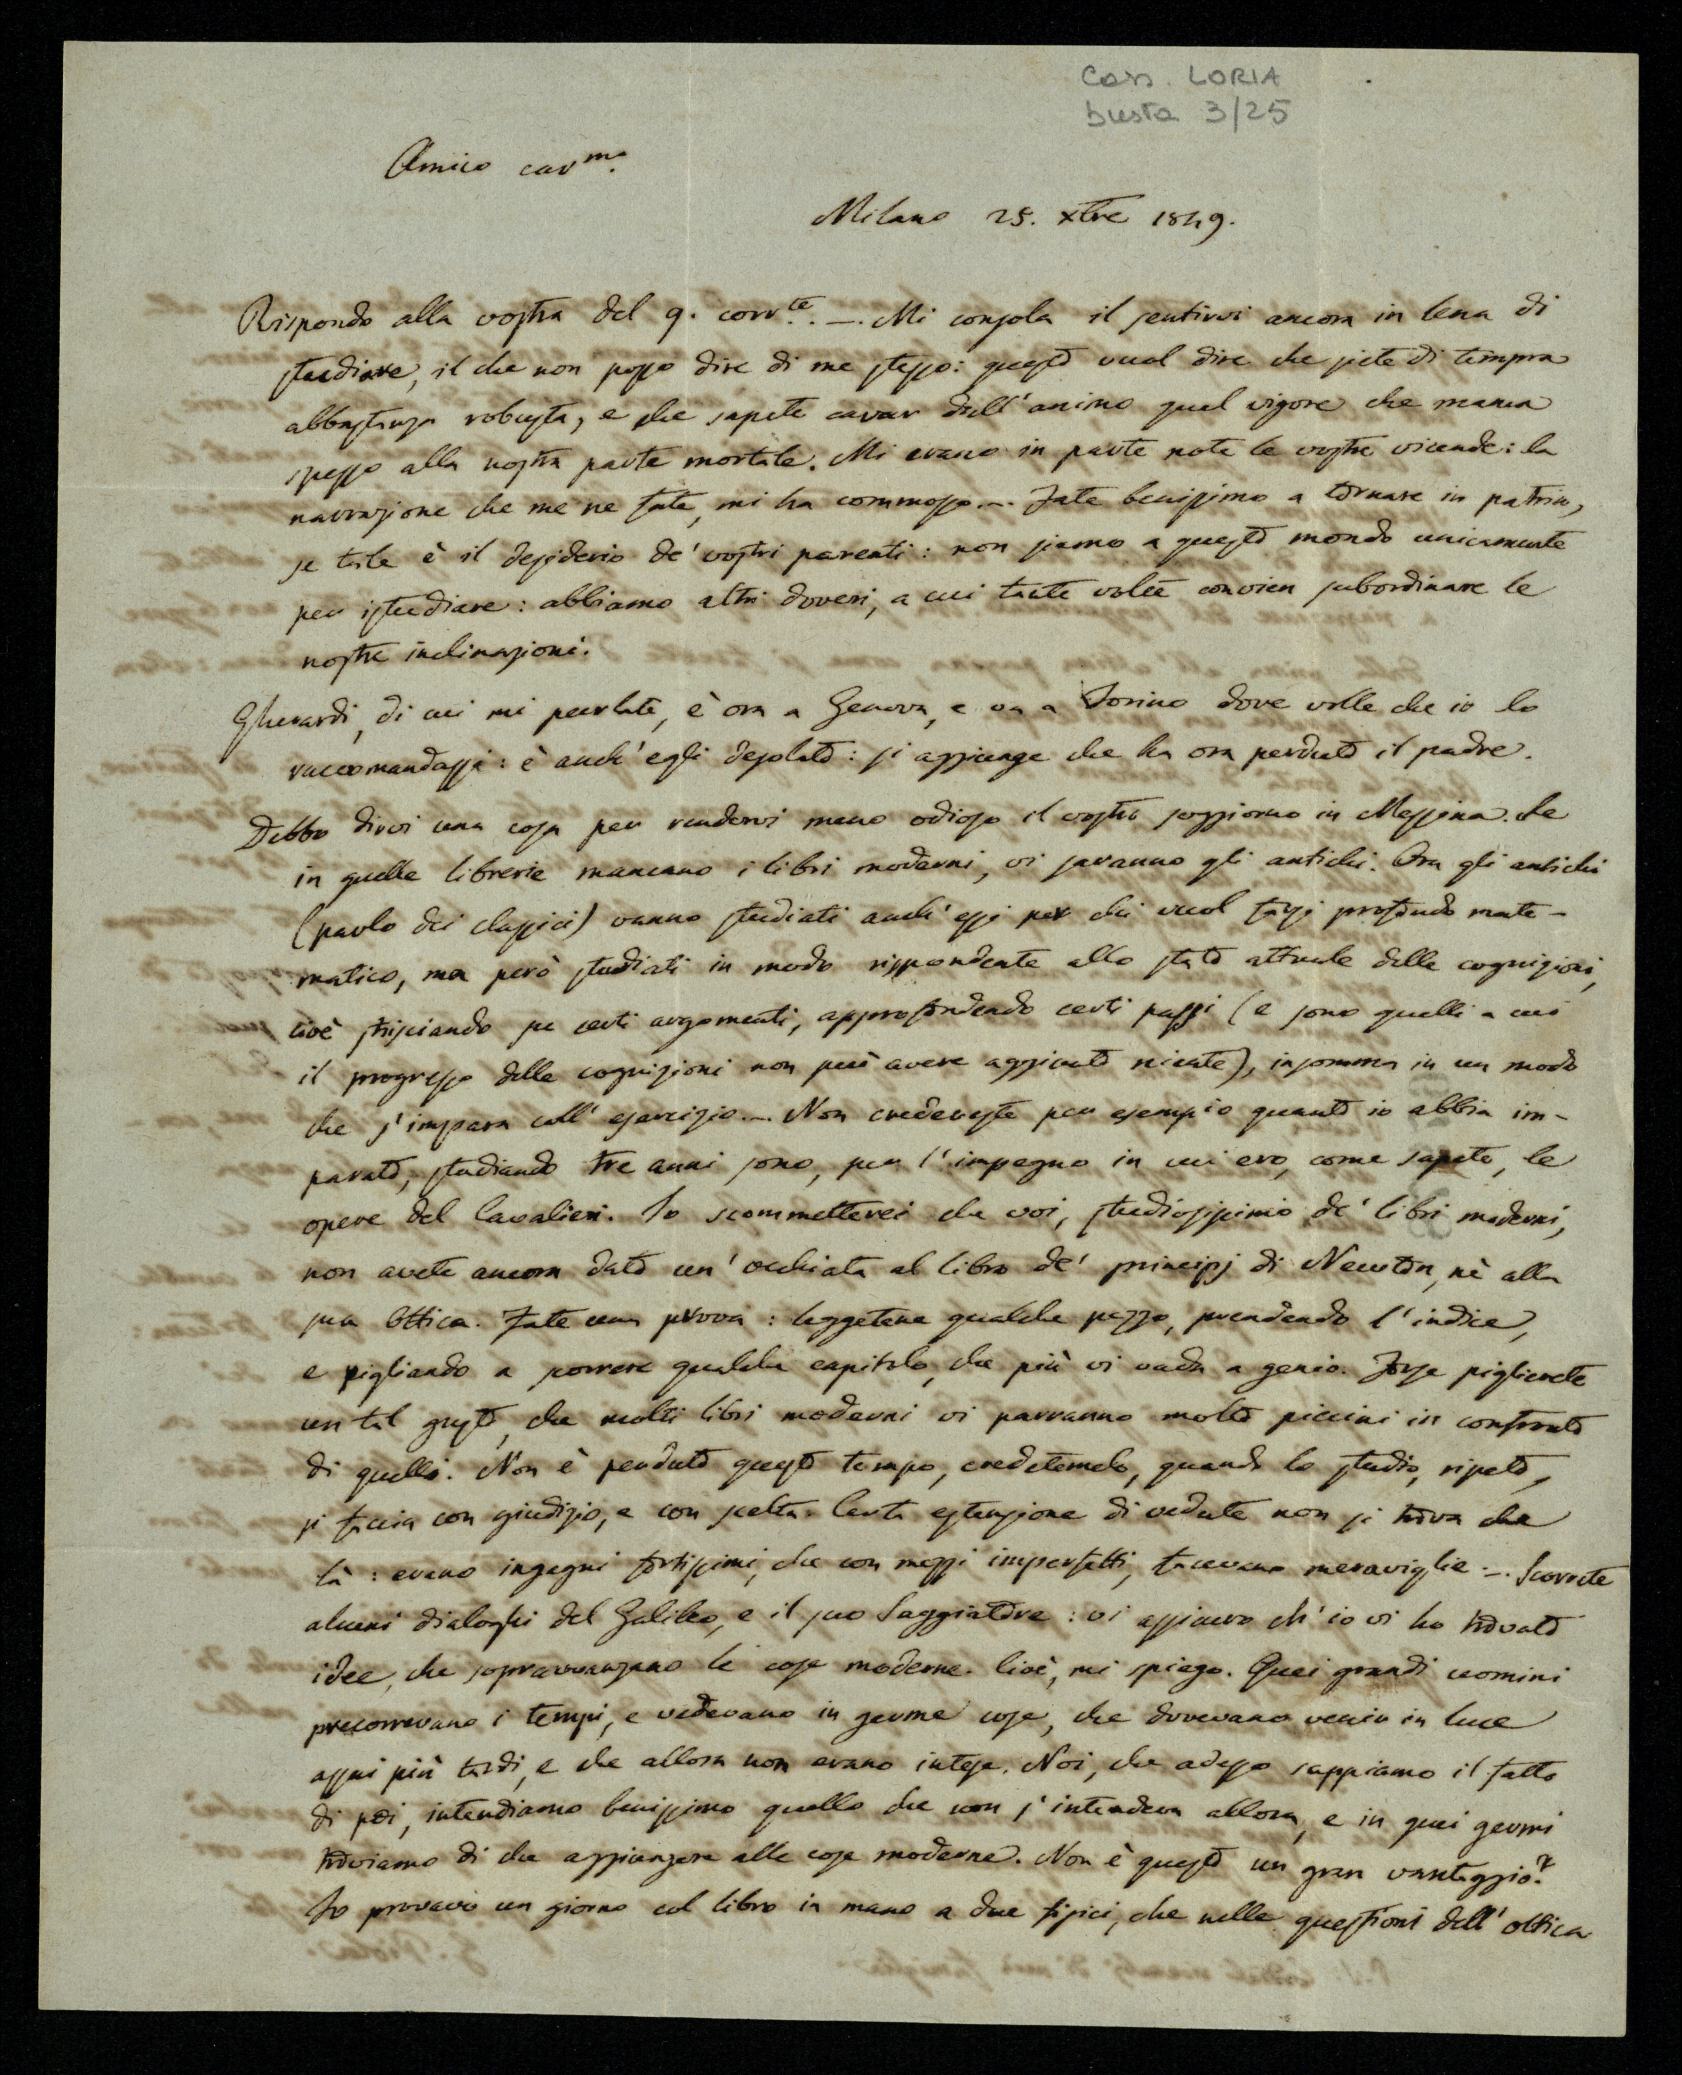 Cass. LORIA
busta 3/25
Amico carmo.
Milano 25. xbre 1849.
Rispondo alla vostra del 9. corrte. — Mi consola il sentirvi ancora in lena di
studiare, il che non posso dire di me stesso: questo vuol dire che siete di tempra
abbastanza robusta, e che sapete cavar dall'animo quel vigore che manca
spesso alla nostra parte mortale. Mi erano in parte note le vostre vicende: la
narrazione che me ne fate, mi ha commosso. — Fate benissimo a tornare in patria,
se tale è il desiderio de' vostri parenti: non siamo a questo mondo unicamente
per istudiare: abbiamo altri doveri, a cui tante volte convien subordinare le
nostre inclinazioni.
Gherardi, di cui mi parlate, è ora a Genova, e va a Torino dove volle che io lo
raccomandassi: è anch'egli desolato: si aggiunge che ha ora perduto il padre.
Debbo dirvi una cosa per rendervi meno odioso il vostro soggiorno in Messina. Se
in quelle librerie mancano i libri moderni, vi saranno gli antichi. Ora gli antichi
(parlo dei classici) vanno studiati anch'essi per chi vuol farsi profondo mate-
matico, ma però studiati in modo rispondente allo stato attuale delle cognizioni,
cioè strisciando su certi argomenti, approfondendo certi passi (e sono quelli a cui
il progresso delle cognizioni non può avere aggiunto niente), insomma in un modo
che s'impara coll'esercizio. — Non credereste per esempio quanto io abbia im-
parato, studiando tre anni sono, per l'impegno in cui ero, come sapete, le
opere del Cavalieri. Io scommetterei che voi, studiosissimo de' libri moderni,
non avete ancora dato un'occhiata al libro de' principj di Newton, nè alla
sua Ottica. Fate una prova: leggetene qualche pezzo, prendendo l'indice,
e pigliando a scorrere qualche capitolo, che più vi vada a genio. Forse piglierete
un tal gusto, che molti libri moderni vi parranno molto piccini in confronto
di quelli. Non è perduto questo tempo, credetemelo, quando lo studio, ripeto,
si faccia con giudizio, e con scelta. Certa estensione di vedute non si trova che
là: erano ingegni fortissimi, che con mezzi imperfetti, facevano meraviglie. — Scorrete
alcuni dialoghi del Galileo, e il suo Saggiatore: vi assicuro ch'io vi ho trovato
idee, che sopravvanzano le cose moderne. Cioè, mi spiego. Quei grandi uomini
precorrevano i tempi, e vedevano in germe cose, che dovevano venir in luce
assai più tardi, e che allora non erano intese. Noi, che adesso sappiamo il fatto
di poi, intendiamo benissimo quello che non s'intendeva allora, e in quei germi
troviamo di che aggiungere alle cose moderne. Non è questo un gran vantaggio?
Io provavo un giorno col libro in mano a due fisici, che nelle questioni dell'ottica